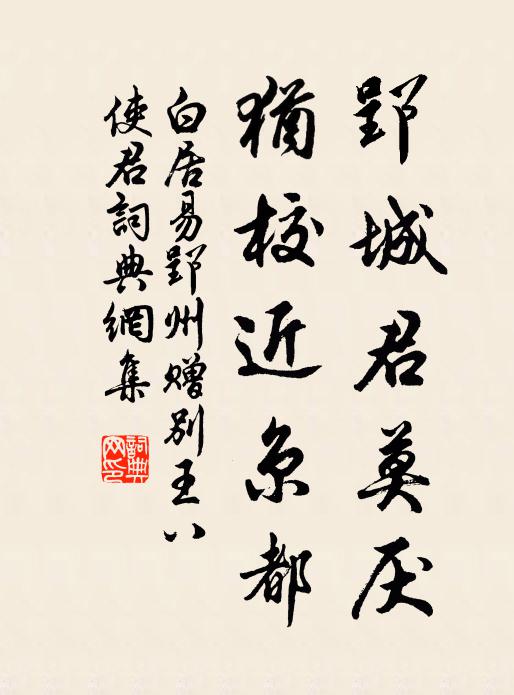 郢城君莫厌
猶校近京都
白居易郢州赠别王八
使君詞典網集
詞典网印